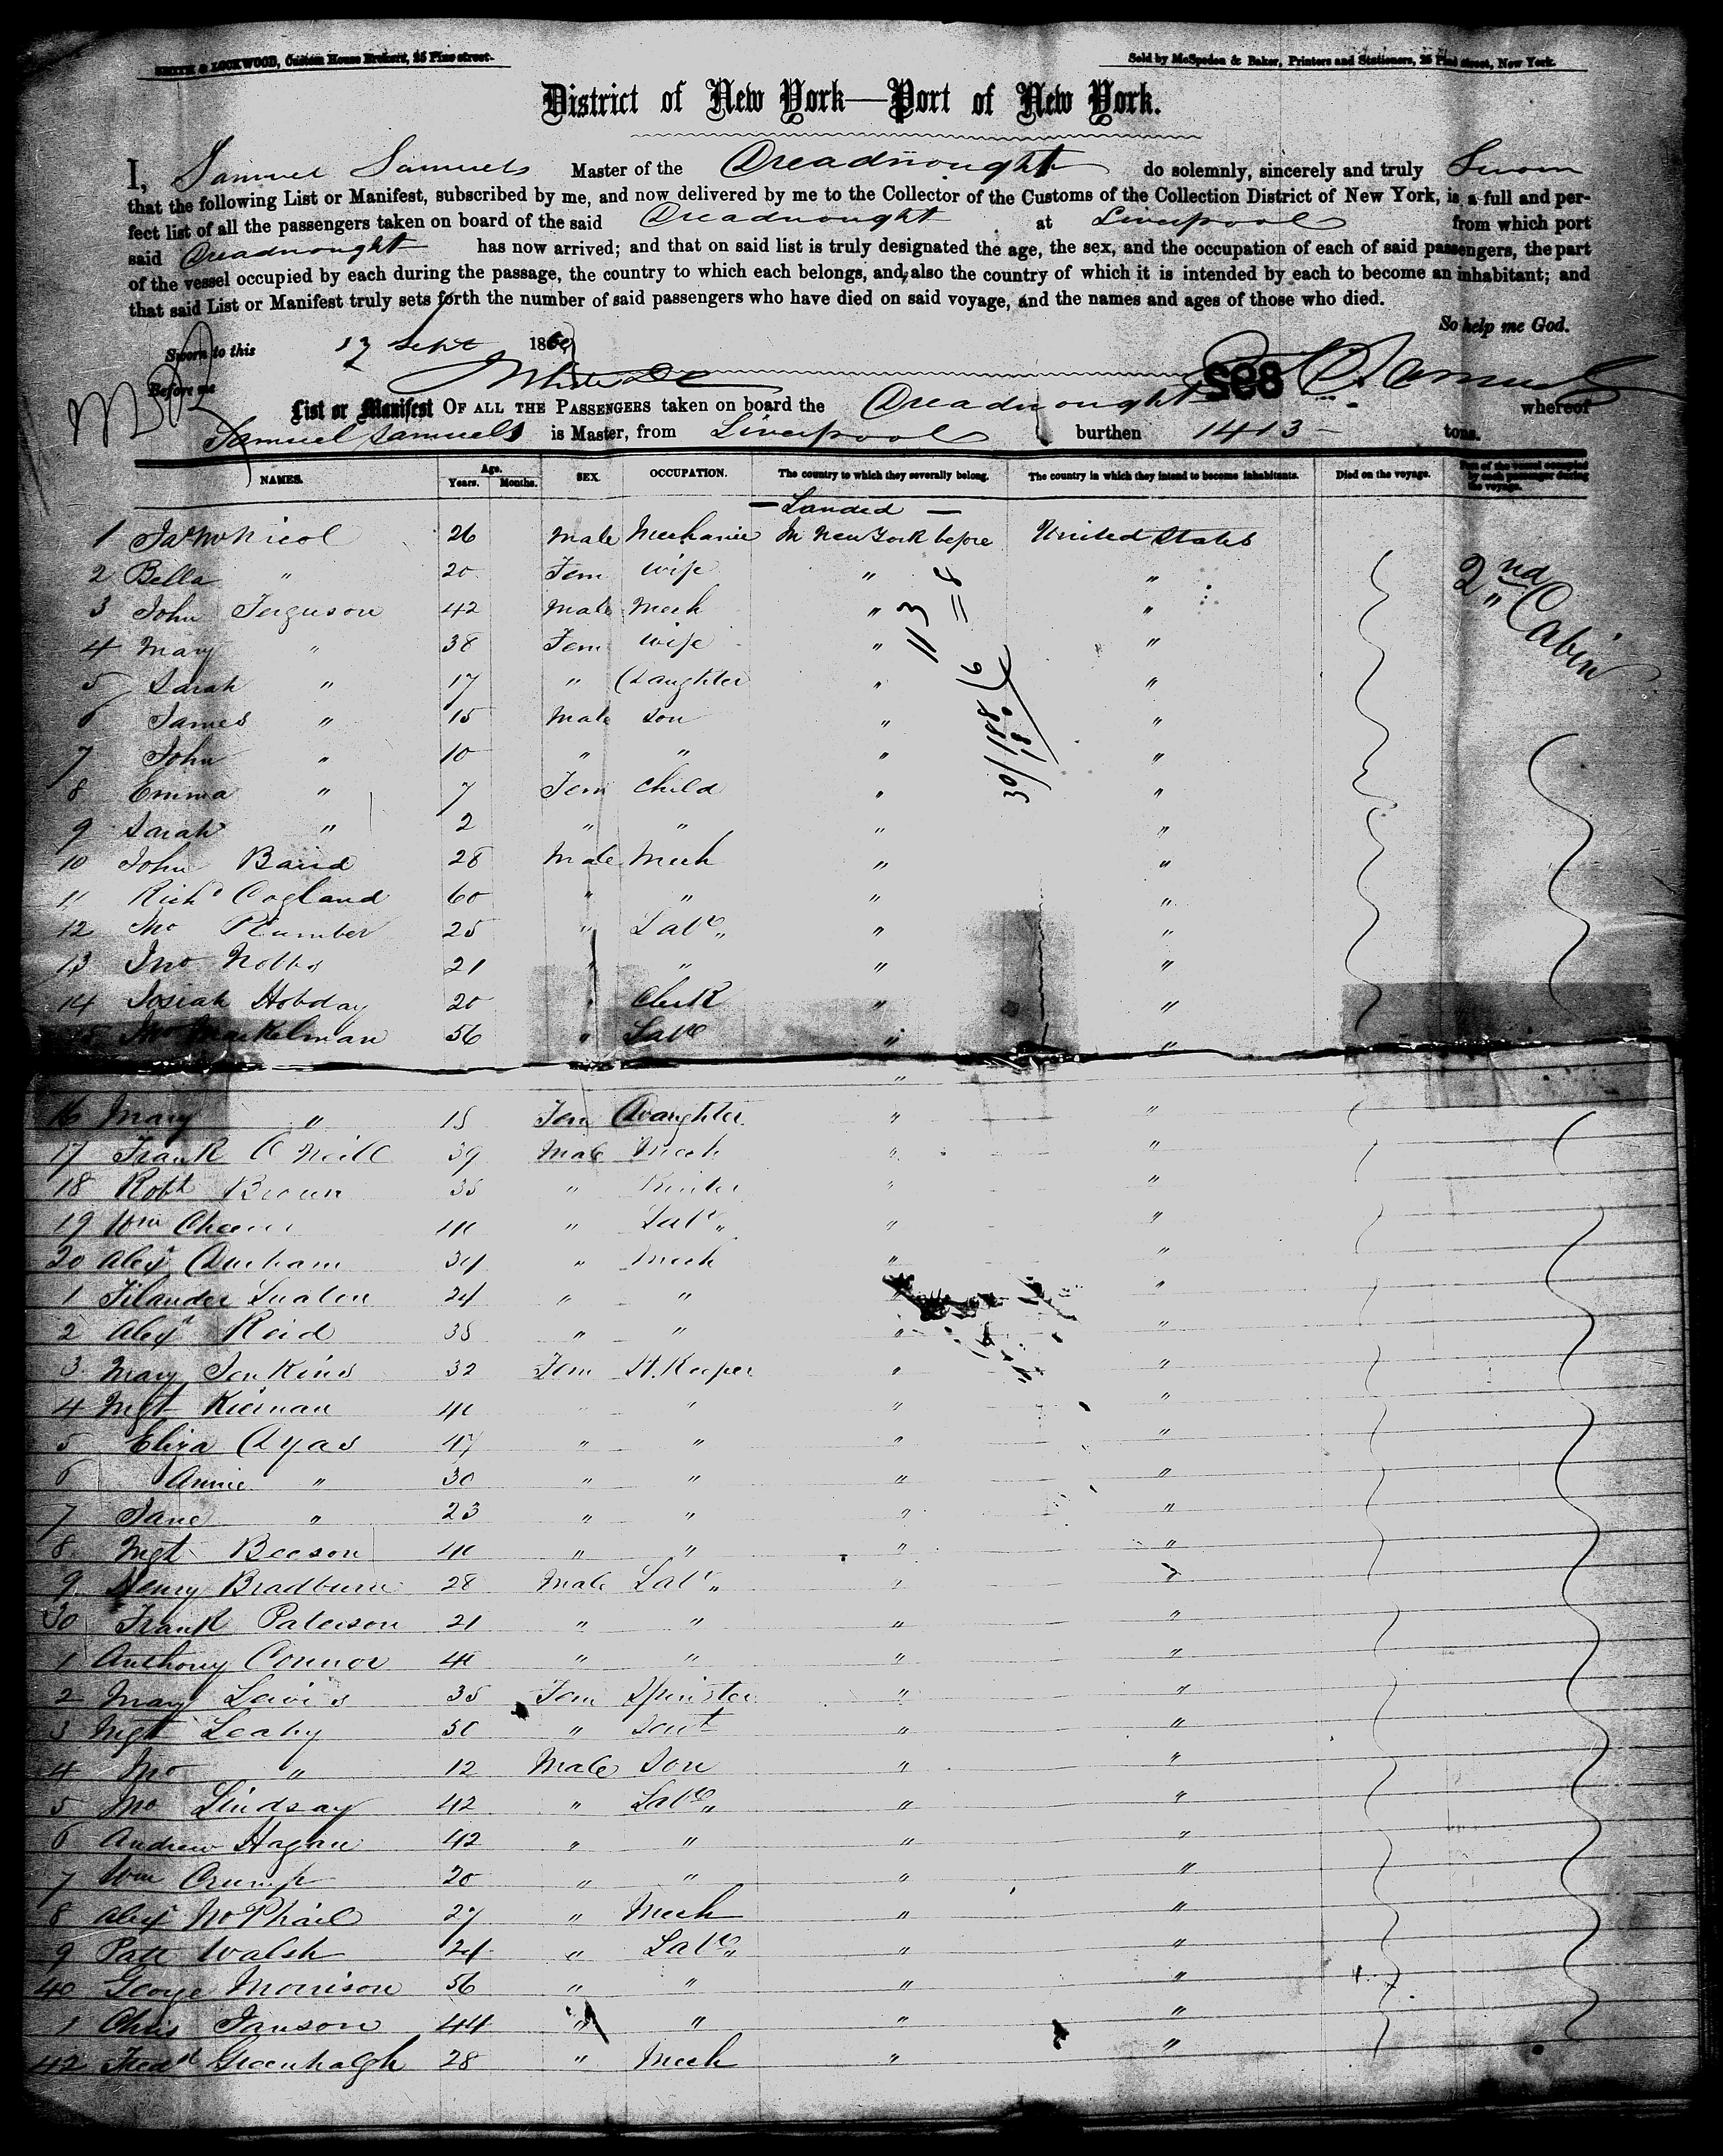 SMITH & LOCKWOOD, Custom House Brokers, 25 Pine street.
Sold by McSpedon & Baker, Printers and Stationers, 25 Pine street, New York.
District of New York—Port of New York.
I, Samuel Samuels Master of the Dreadnought do solemnly, sincerely and truly Swear
that the following List or Manifest, subscribed by me, and now delivered by me to the Collector of the Customs of the Collection District of New York, is a full and per-
fect list of all the passengers taken on board of the said Dreadnought at Liverpool from which port
said Dreadnought has now arrived; and that on said list is truly designated the age, the sex, and the occupation of each of said passengers, the part
of the vessel occupied by each during the passage, the country to which each belongs, and also the country of which it is intended by each to become an inhabitant; and
that said List or Manifest truly sets forth the number of said passengers who have died on said voyage, and the names and ages of those who died.
So help me God.
Sworn to this 17 Sept 1860
Before me S. Samuels
895
List or Manifest OF ALL THE PASSENGERS taken on board the Dreadnought whereof
Samuel Samuels is Master, from Liverpool burthen 1413 tons.
NAMES. Age. Years. Months. SEX. OCCUPATION. The country to which they severally belong. The country in which they intend to become inhabitants. Died on the voyage. Part of the vessel occupied by each passenger during the voyage.
— Landed —
1 Jas McNicol 26 Male Mechanic In New York before United States
2 Bella " 20 Fem wife " " 2nd Cabin
3 John Ferguson 42 Male Mech " "
4 Mary " 38 Fem wife " "
5 Sarah " 17 " Daughter " "
6 James " 15 Male son " "
7 John " 10 " " " "
8 Emma " 7 Fem child " "
9 Sarah " 2 " " " "
10 John Baird 28 Male Mech " "
11 Richd Cogland 60 " " " "
12 Jno Plumber 25 " Labr " "
13 Jno Nobbs 21 " " " "
14 Josiah Hobday 20 " Clerk " "
15 Jno Markelman 56 " Labr " "
16 Mary " 15 Fem Daughter " "
17 Frank O Neill 39 Male Mech " "
18 Robt Brown 35 " " "
19 Wm 40 " Labr " "
20 Alexr Durham 34 " Mech " "
1 Filander 24 " " "
2 Alexr Reid 35 " " " "
3 Mary Jenkins 32 Fem H. Keeper " "
4 Mgt Kiernan 40 " " " "
5 Eliza Dyas 47 " " " "
6 Annie " 30 " " " "
7 Jane " 23 " " " "
8 Mgt Beeson 40 " " " "
9 Henry Bradburn 28 Male Labr " "
30 Frank Paterson 21 " " " "
1 Anthony Connor 40 " " " "
2 Mary Lewis 35 Fem Spinster " "
3 Mgt Leahy 50 " Servt " "
4 Jno " 12 Male Son " "
5 Jno Lindsay 42 " Labr " "
6 Andrew Hagan 42 " " " "
7 Wm Crump 20 " " " "
8 Alexr McPhail 27 " Mech " "
9 Patt Walsh 24 " Labr " "
40 George Morrison 56 " " " "
1 Chris Janson 44 " " " "
42 Fredk Greenhalgh 28 " Mech " "